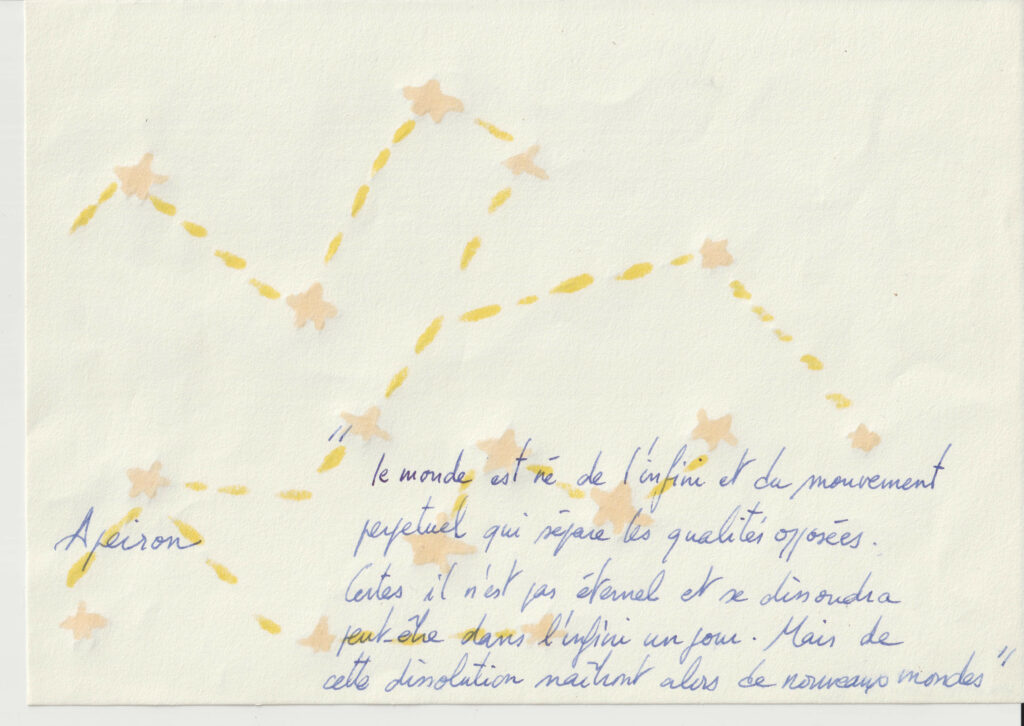 " le monde est né de l'infini et du mouvement
perpetuel qui sépare les qualités opposées.
Apeiron
Certes il n'est pas éternel et se dissoudra
peut-être dans l'infini un jour. Mais de
cette dissolution naîtront alors de nouveaux mondes "